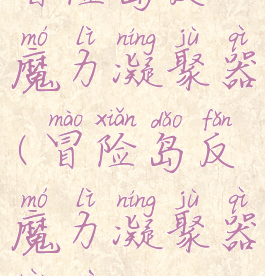 mó lì níng jù qì
魔力凝聚器
mào xiǎn dǎo fǎn
(冒险岛反
mó lì níng jù qì
魔力凝聚器